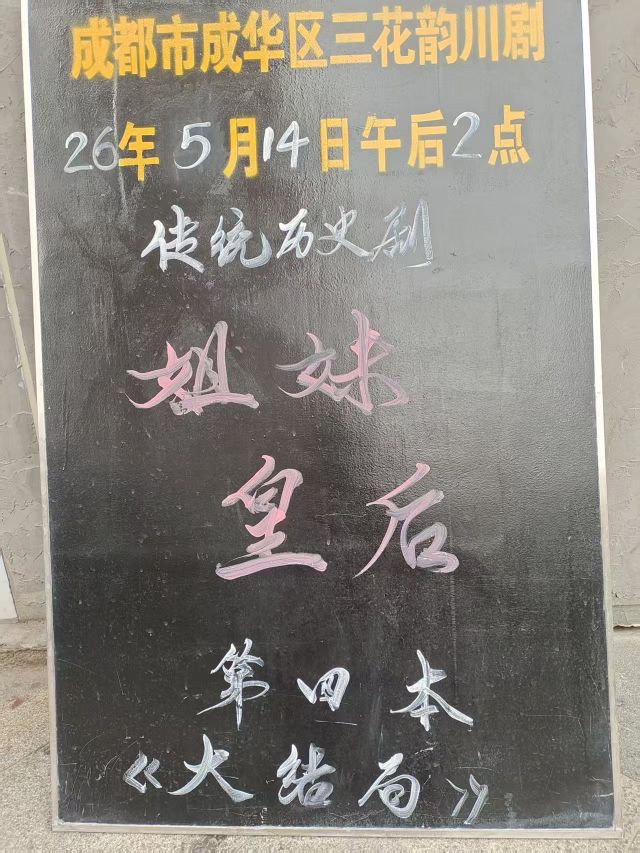 成都市成华区三花韵川剧
26年5月14日午后2点
传统历史剧
姐妹
皇后
第四本
《大结局》